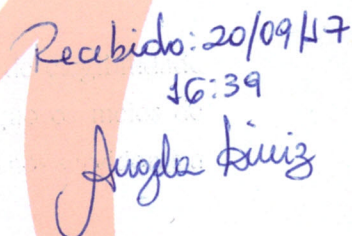 Recebido: 20/09/17
16:39
Angela Diniz